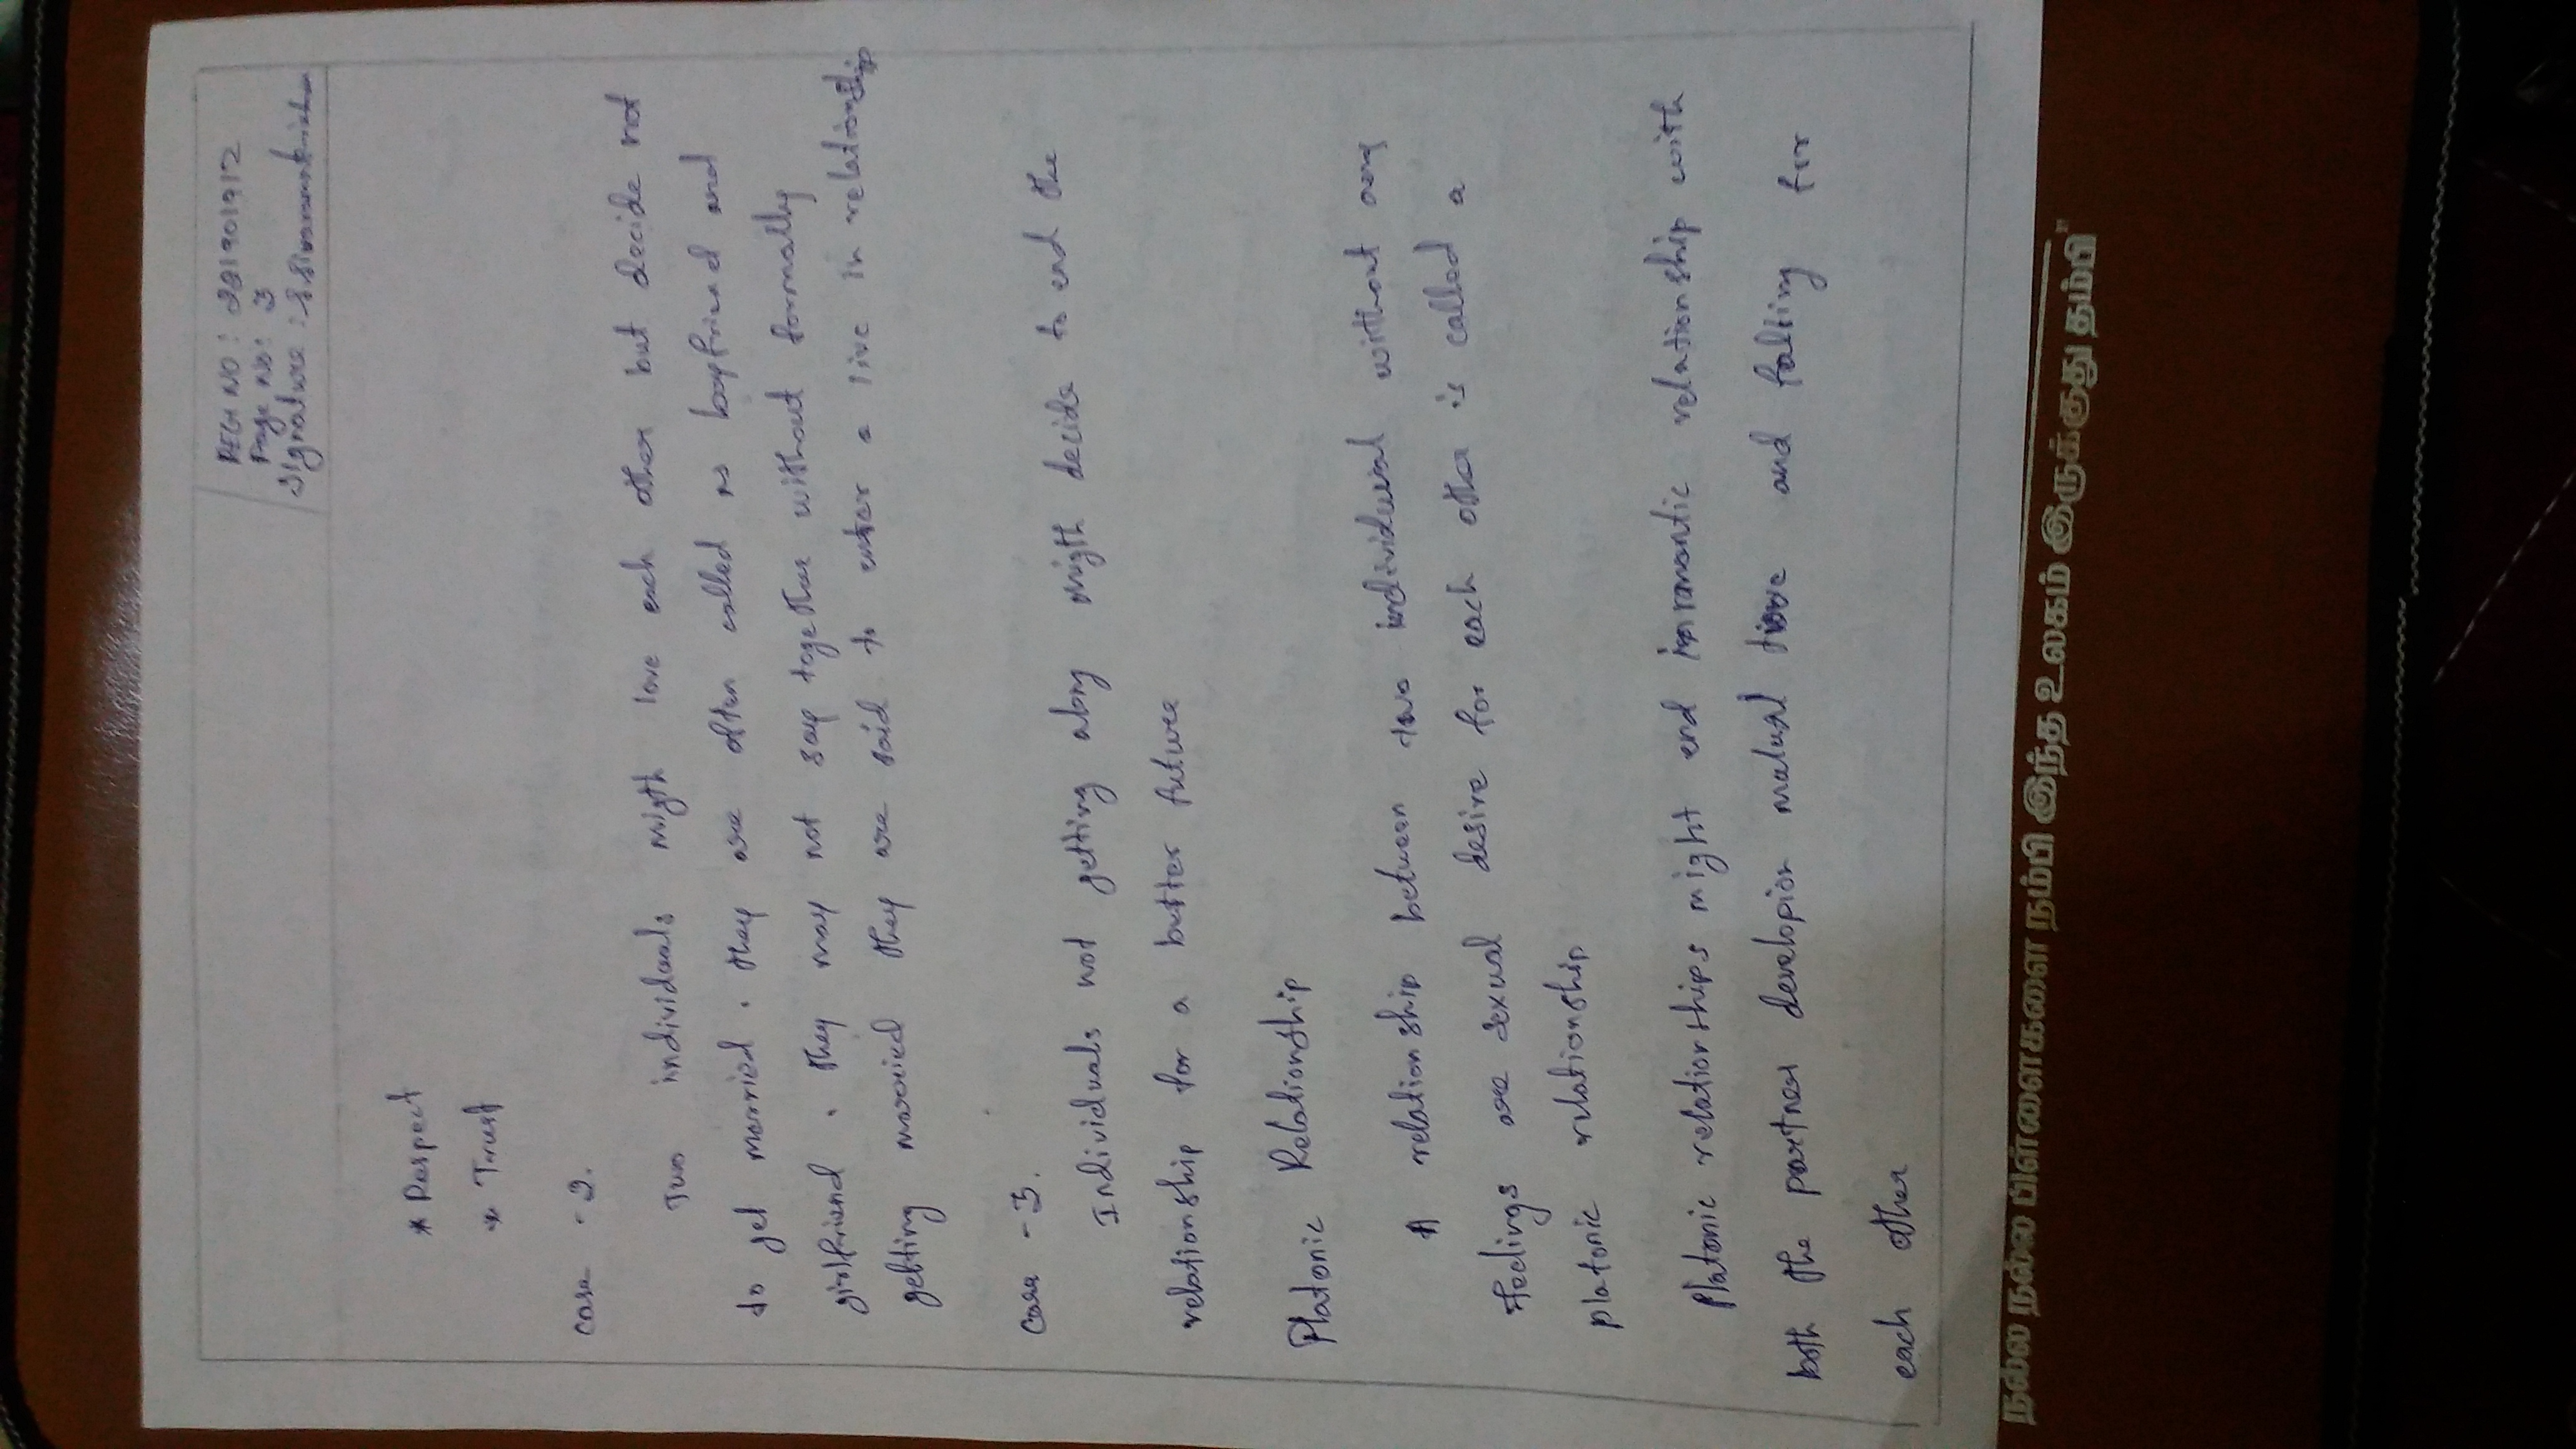 REG NO : 291901912
Page No : 3
Signature :
* Respect
* Trust
case - 2.
Two individuals migth love each other but decide not
to get married . they are often called as boyfriend and
girlfriend . they may not say together without formally
getting married they are said to enter a live in relationship
case - 3.
Individuals not getting along migth decide to end the
relationship for a better future
Platonic Relationship
A relationship between two individual without any
Feelings are sexual desire for each other is called a
platonic relationship
Platonic relationships might end in romantic relationship with
both the partner develop mutual and falling for
each other
நல்ல நல்ல பிள்ளைகளை நம்பி இந்த உலகம் இருக்குது தம்பி"